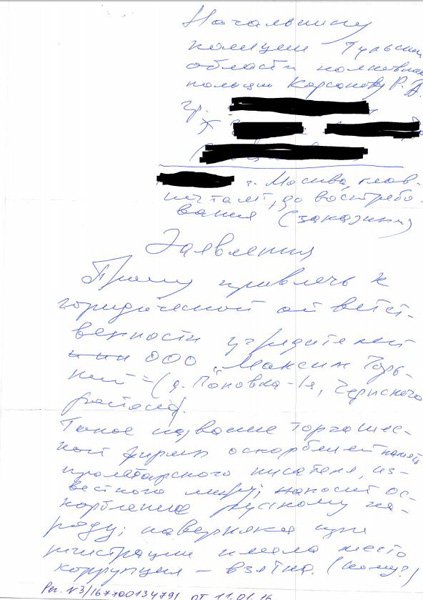 Начальнику
полиции Тульской
области полковнику
полиции
гр.
г. Москва, глав-
почтамт, до востребо-
вания (заказным)
Заявление
Прошу привлечь к
юридической ответст-
венности учредителей
ООО "Максим Горь-
кий" (д. Поповка-1я, Чернского
района).
Такое название торгашес-
кой фирмы оскорбляет память
пролетарского писателя, из-
вестного миру; наносит ос-
корбление русскому на-
роду; наверняка при
регистрации имела место
коррупция - взятка. (кому?)
Рег. №3/167700134791 от 11.01.16